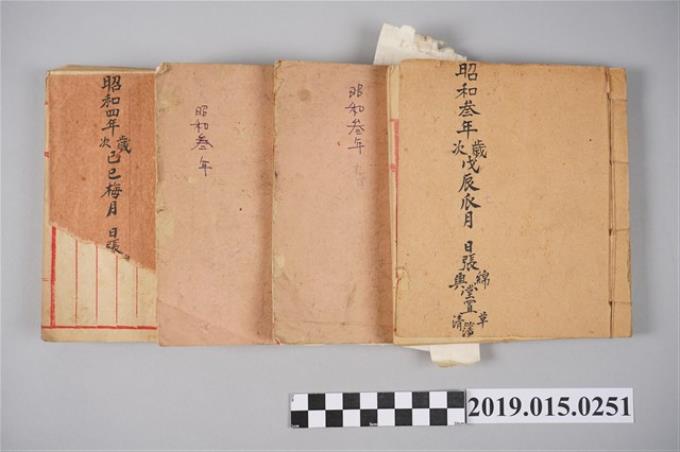 昭和叁年
歲次戊辰瓜月 日張
綿興堂置
草清簿
昭和叁年
昭和叁年
昭和四年
歲次己巳梅月 日張
2019.015.0251